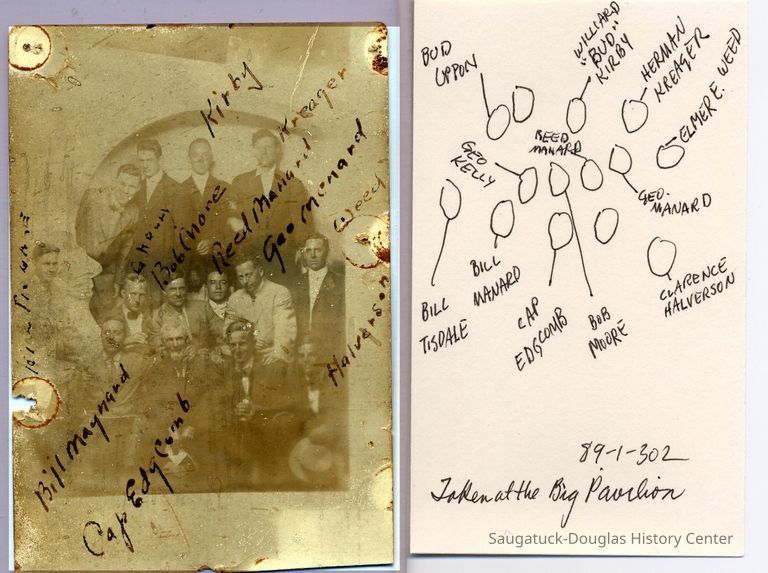 Kirby
Kreager
Reed Manard
Geo Menard
Weed
Bob More
Halverson
Bill Maynard
Cap EdgComb
BUD
UPPON
"WILLIARD
"BUD"
KIRBY
HERMAN
KREAGER
ELMER E. WEED
REED
MANARD
GEO
KELLY
GEO.
MANARD
BILL
TISDALE
BILL
MANARD
CAP
EDGCOMB
BOB
MOORE
CLARENCE
HALVERSON
89-1-302
Taken at the Big Pavilion
Saugatuck-Douglas History Center